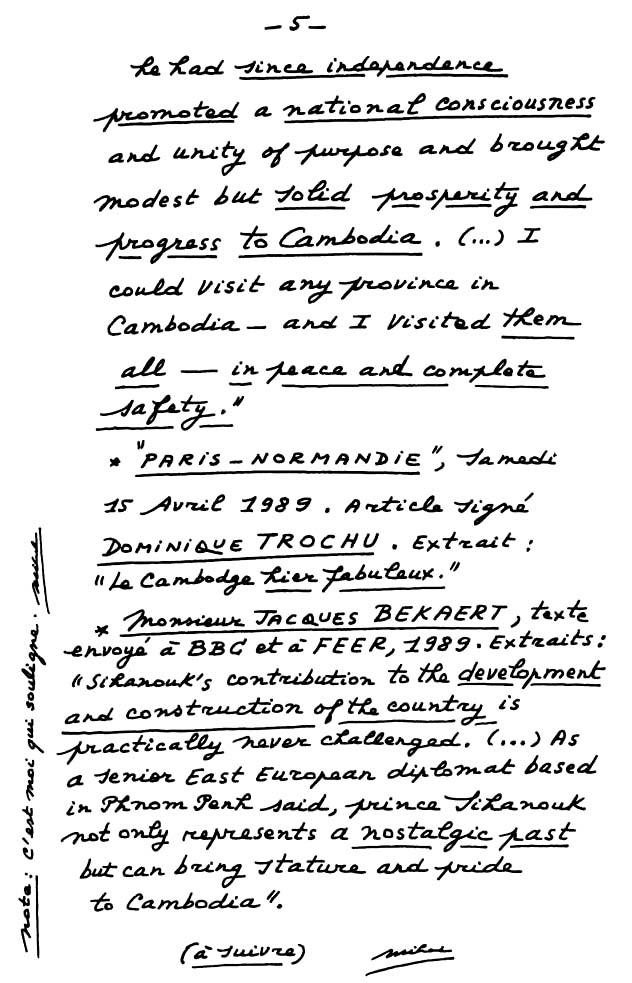 – 5 –
he had since independence
promoted a national consciousness
and unity of purpose and brought
modest but solid prosperity and
progress to Cambodia. (...) I
could visit any province in
Cambodia – and I visited them
all — in peace and complete
safety."
* "PARIS – NORMANDIE", Samedi
15 Avril 1989. Article signé
DOMINIQUE TROCHU. Extrait :
"Le Cambodge hier fabuleux."
* Monsieur JACQUES BEKAERT, texte
envoyé à BBC et à FEER, 1989. Extraits :
"Sihanouk's contribution to the development
and construction of the country is
practically never challenged. (...) As
a senior East European diplomat based
in Phnom Penh said, prince Sihanouk
not only represents a nostalgic past
but can bring stature and pride
to Cambodia".
(à suivre)
note : C'est moi qui souligne.